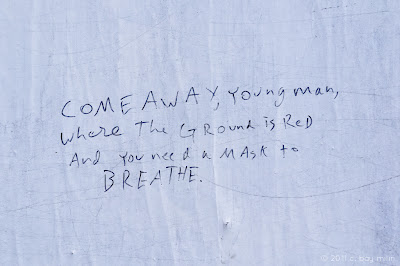 COME AWAY, YOUNG MAN,
WHERE THE GROUND IS RED
AND YOU NEED A MASK TO
BREATHE.